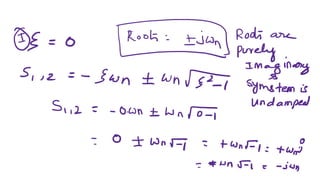 I ξ = 0
Roots : ± jωn
Roots are purely Imaginary & Symstem is undamped
S1,2 = - ξωn ± ωn √ξ²-1
S1,2 = - 0ωn ± ωn √0-1
= 0 ± ωn √-1 = + ωn √-1 = + ωn j
= - ωn √-1 = - jωn